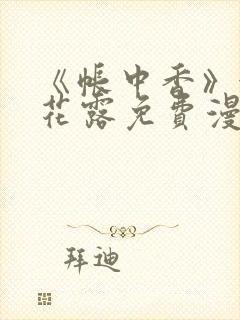 《帐中香》
花露免費漫
拜迪